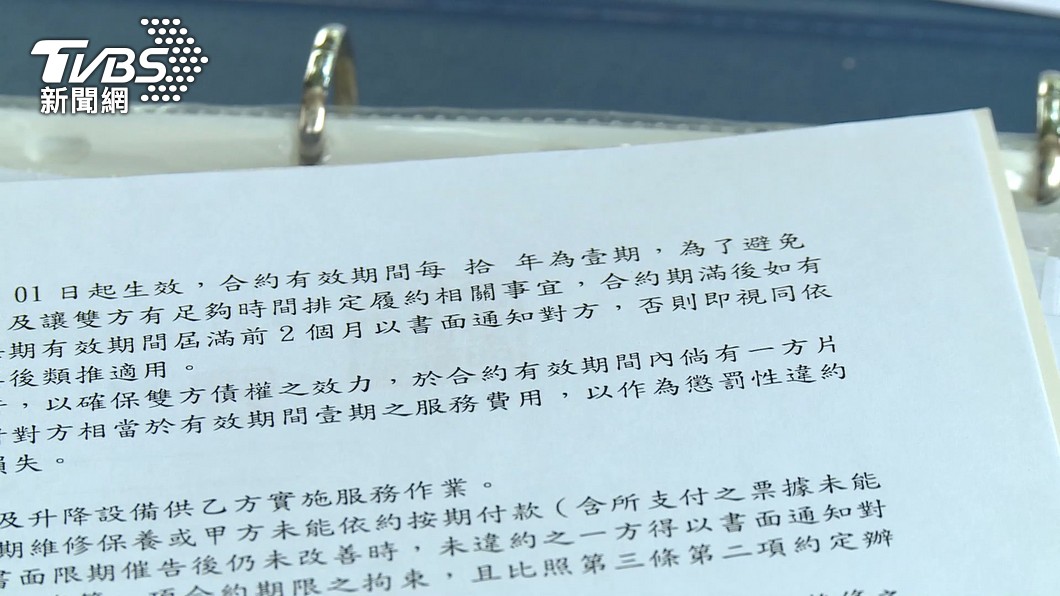 TVBS
新聞網
01 日起生效，合約有效期間每 拾 年為壹期，為了避免
及讓雙方有足夠時間排定履約相關事宜，合約期滿後如有
期有效期間屆滿前 2 個月以書面通知對方，否則即視同依
後類推適用。
，以確保雙方債權之效力，於合約有效期間內倘有一方片
對方相當於有效期間壹期之服務費用，以作為懲罰性違約
損失。
及升降設備供乙方實施服務作業。
期維修保養或甲方未能依約按期付款（含所支付之票據未能
書面限期催告後仍未改善時，未違約之一方得以書面通知對
第一項合約期限之拘束，且比照第三條第二項約定辦